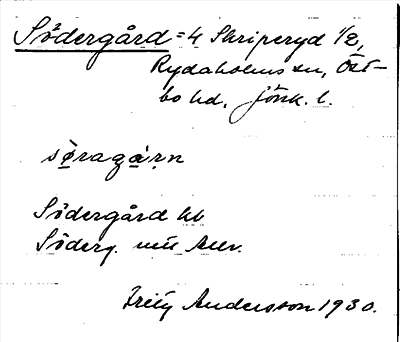 Södergård = 4 Skriperyd 1/2,
Rydaholms sn, Öst-
bo hd, Jönk. l.
söragár̥n
Södergård hb
Söderg.
Fritz Andersson 1930.